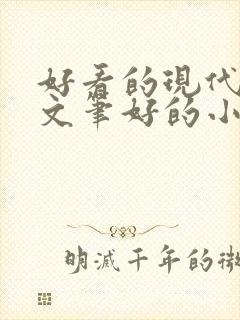 好看的现代
文笔好的小
明滅千年的微